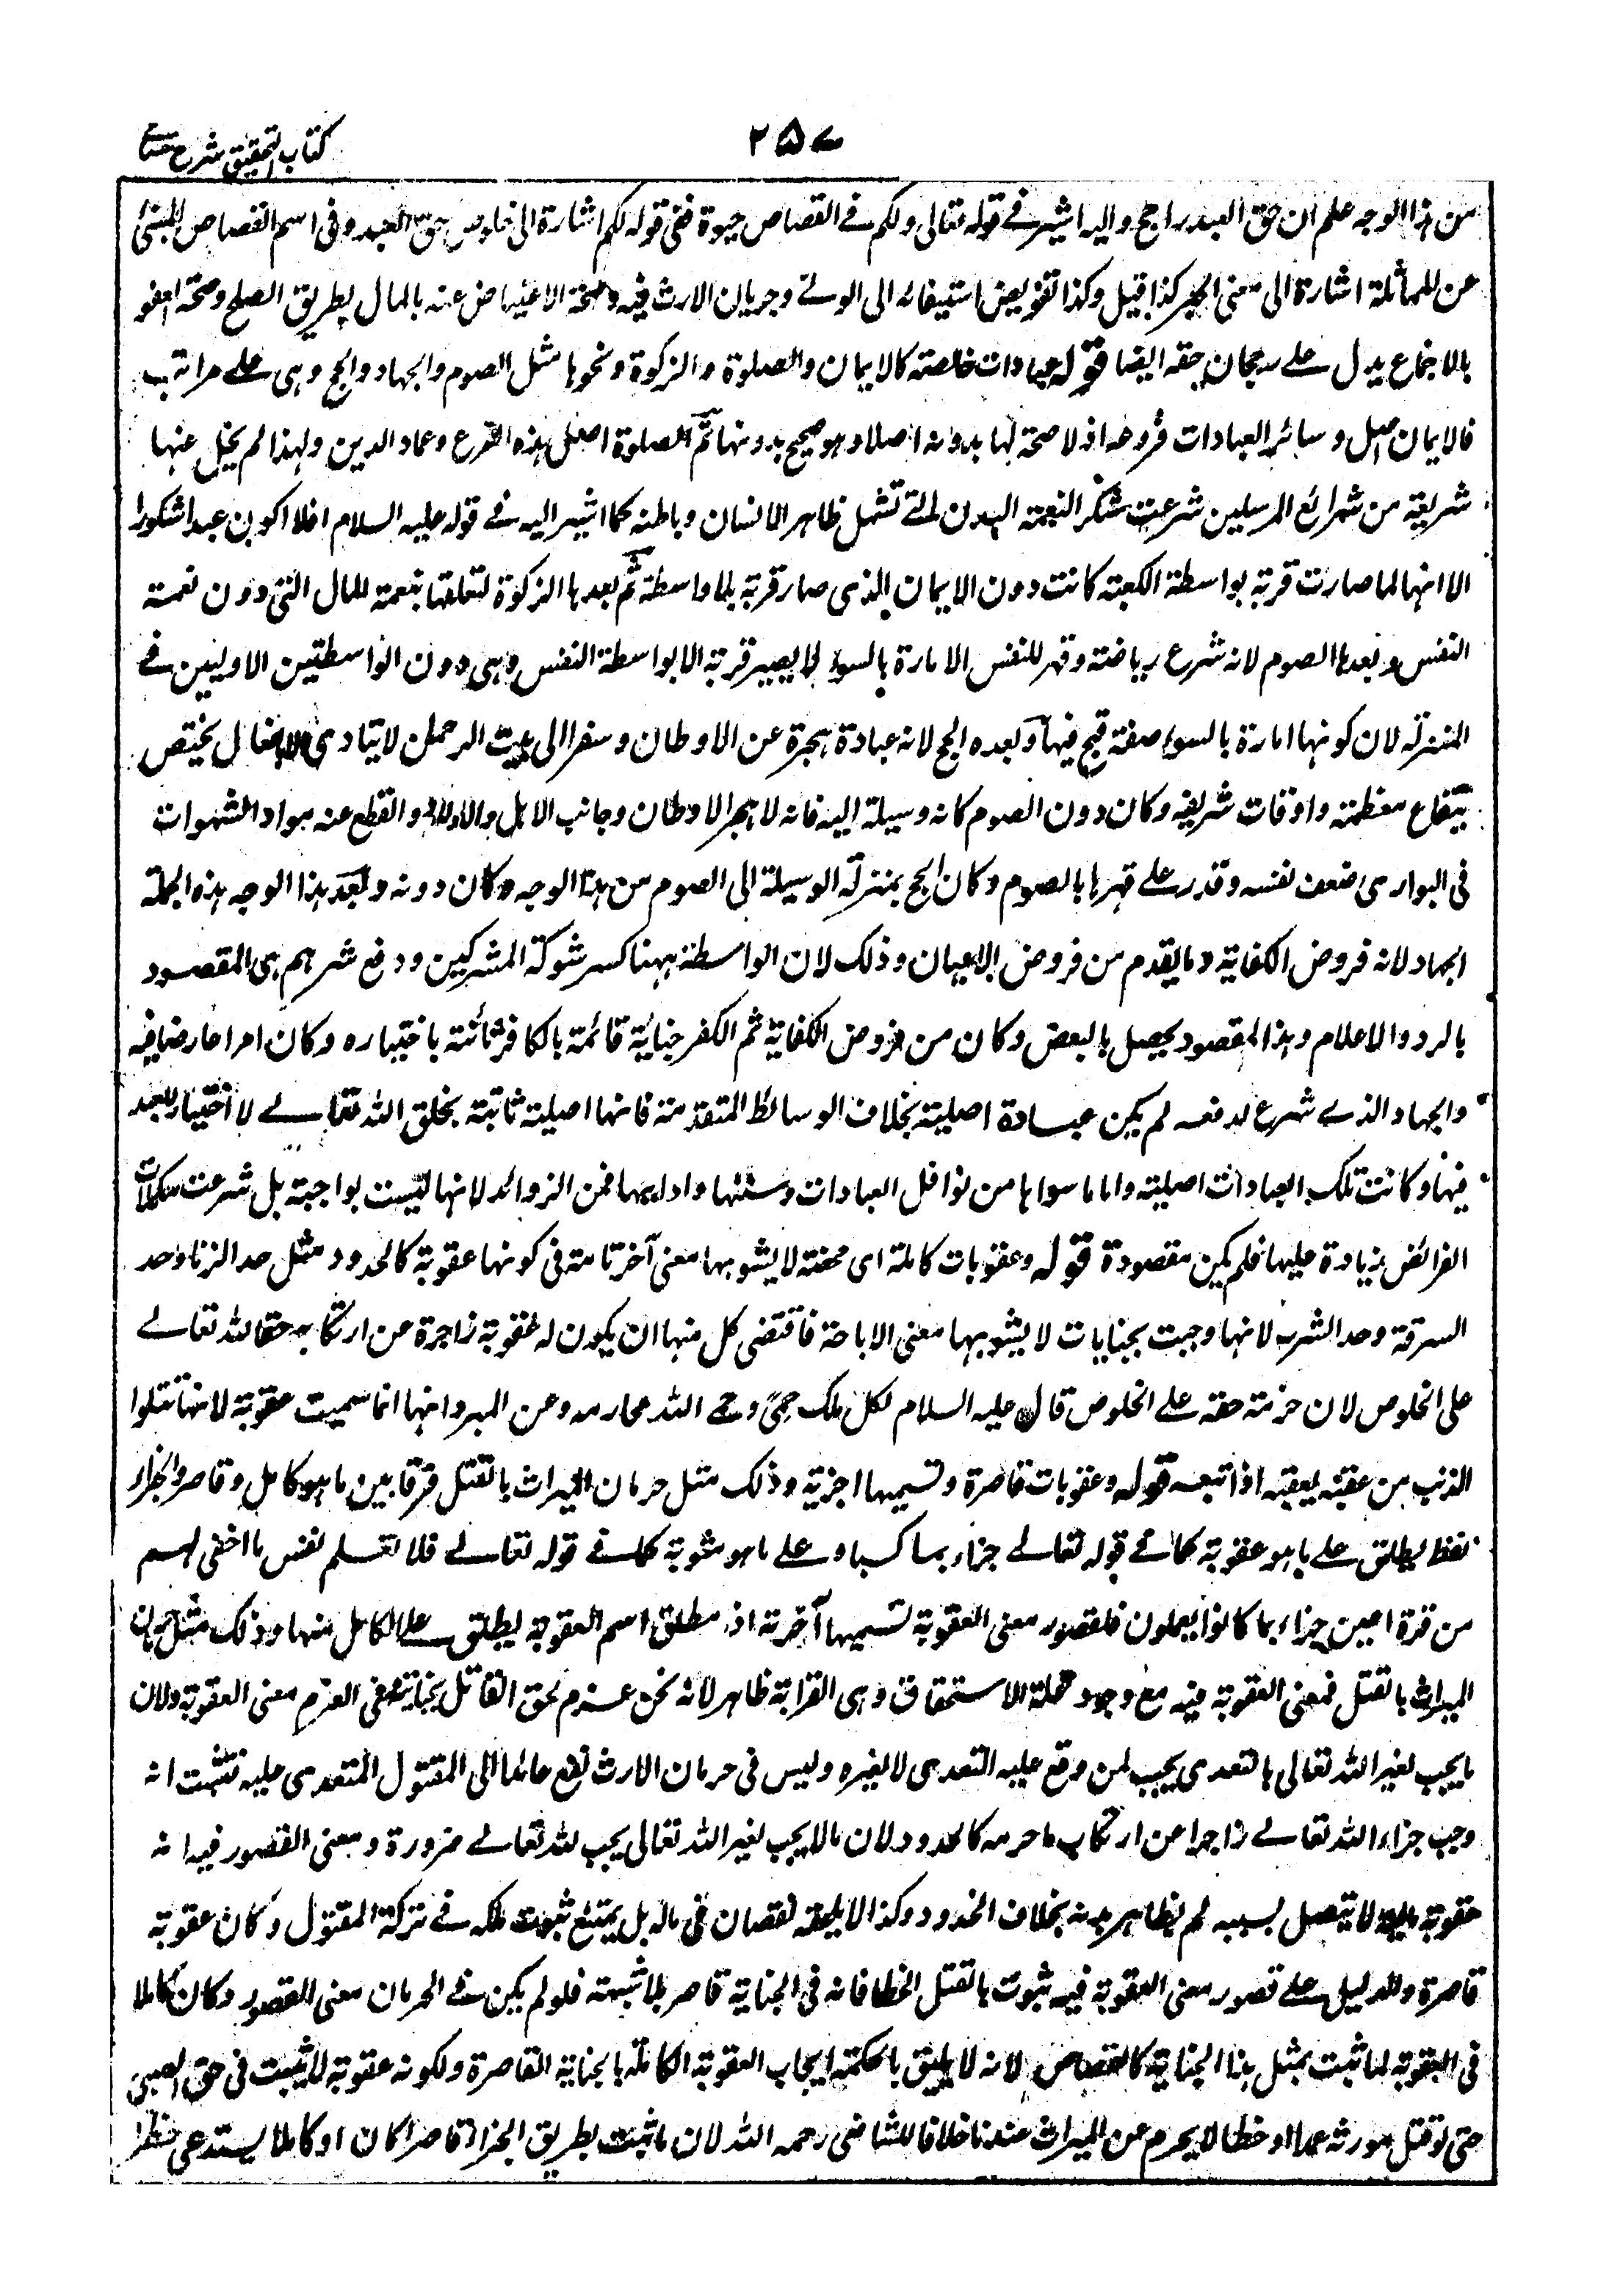 كتاب التحقيق شرح حسامي
٢٥٧
من هذا الوجه علم ان حق العبد راجح واليه اشير فے قوله تعالى ولكم فے القصاص حيوة ففى قوله لكم اشارة الى خلوص حق العبد وفى اسم القصاص المبنئ
عن المماثلة اشارة الى معنى الجبر كذا قيل وكذا تفويض استيفائه الى الولے وجريان الارث فيه وصحة الاعتياض عنه بالمال بطريق الصلح وصحة العفو
بالاجماع يدل علے رجحان حقه ايضا قوله عبادات خالصة كالايمان والصلوة والزكوة ونحوها مثل الصوم والجهاد والحج وهى علے مراتب
فالايمان اصل وسائر العبادات فروعه اذ لا صحة لها بدونه اصلا وهو صحيح بدونها ثم الصلوة اصل هذه الفرع وعماد الدين ولهذا لم يخل عنها
شريعة من شرائع المرسلين شرعت شكر النعمة البدن التے تشمل ظاهر الانسان وباطنه كما اشير اليه فے قوله عليه السلام افلا اكون عبدا شكورا
الا انها لما صارت قربة بواسطة الكعبة كانت دون الايمان الذى صار قربة بلا واسطة ثم بعدها الزكوة لتعلقها بنعمة المال التى دون نعمة
النفس وبعدها الصوم لانه شرع رياضة وقهر للنفس الامارة بالسوء لا يصير قربة الا بواسطة النفس وهى دون الواسطتين الاوليين فے
المنزلة لان كونها امارة بالسوء صفة قبح فيها وبعده الحج لانه عبادة هجرة عن الاوطان وسفر الى بيت الرحمن لا يتادى الا بافعال يختص
ببقاع معظمة واوقات شريفة وكان دون الصوم كانه وسيلة اليه فانه لا هجر الاوطان وجانب الاهل والاولاد والقطع عنه مواد الشهوات
فى البوادى ضعف نفسه وقدر علے قهرها بالصوم وكان الحج بمنزلة الوسيلة الى الصوم من هذا الوجه وكان دونه وبعد هذا الوجه هذه الجملة
الجهاد لانه فروض الكفاية وما يقدم من فروض الاعيان وذلك لان الواسطة ههنا كسر شوكة المشركين ودفع شرهم هى المقصود
بالرد والاعلام وهذا المقصود يحصل بالبعض وكان من فروض الكفاية ثم الكفر جناية قائمة بالكافر ثابتة باختياره وكان امرا عارضا فيه
والجهاد الذے شرع لدفعه لم يكن عبادة اصلية بخلاف الوسائط المتقدمة فانها اصلية ثابتة بخلق الله تعالے لا اختيار للعبد
فيها وكانت تلك العبادات اصلية واما ما سواها من نوافل العبادات وسننها وادابها فمن الزوائد لانها ليست بواجبة بل شرعت مكملات
الفرائض زيادة عليها فلم يكن مقصودة قوله وعقوبات كاملة اى محضة لا يشوبها معنى آخر تامة فى كونها عقوبة كالحدود مثل حد الزنا وحد
السرقة وحد الشرب لانها وجبت بجنايات لا يشوبها معنى الاباحة فاقتضى كل منها ان يكون له عقوبة زاجرة عن ارتكابه حقا لله تعالے
على الخلوص لان حرمته حقه علے الخلوص قال عليه السلام لكل ملك حمى وحمے الله محارمه وعن المبرد انها انما سميت عقوبة لانها تتلوا
الذنب من عقبه يعقبه اذا تبعه قوله وعقوبات قاصرة وتسميها اجزية وذلك مثل حرمان الميراث بالقتل فرقا بين ما هو كامل وقاصر والجزاء
لفظ يطلق علے ما هو عقوبة كما فے قوله تعالے جزاء بما كسبا وعلے ما هو مثوبة كما فے قوله تعالے فلا تعلم نفس ما اخفى لهم
من قرة اعين جزاء بما كانوا يعملون فلقصور معنى العقوبة تسميها اجزية اذ مطلق اسم العقوبة يطلق علے الكامل منها وذلك مثل حرمان
الميراث بالقتل فمعنى العقوبة فيه مع وجود علة الاستحقاق وهى القرابة ظاهر لانه نحن غرم لحق القاتل بجنايته ففى الغرم معنى العقوبة ولان
ما يجب لغير الله تعالى بالتعدى يجب لمن وقع عليه التعدى لا لغيره وليس فى حرمان الارث نفع عائد الى المقتول المتعدى عليه فثبت انه
وجب جزاء الله تعالے زاجرا عن ارتكاب ما حرمه كالحدود لان ما لا يجب لغير الله تعالى يجب لله تعالے ضرورة ومعنى القصور فيه انه
عقوبة مالية لا يتصل بسببه الم بظاهر بدنه بخلاف الحدود وكذا لا يلحقه نقصان فى ماله بل يمتنع ثبوت ملكه فے تركة المقتول وكان عقوبة
قاصرة والدليل علے قصور معنى العقوبة فيه ثبوت بالقتل الخطا فانه فى الجناية قاصر بلا شبهة فلو لم يكن فے الحرمان معنى القصور وكان كاملا
فى العقوبة لما ثبت بمثل هذا الجناية كالقصاص لانه لا يليق بالحكمة ايجاب العقوبة الكاملة بالجناية القاصرة ولكونه عقوبة لا يثبت فى حق الصبى
حتى لو قتل مورثه عمدا او خطا لا يحرم عن الميراث عندنا خلافا للشافعى رحمه الله لان ما ثبت بطريق الجزاء قاصرا كان او كاملا يستدعى حظرا